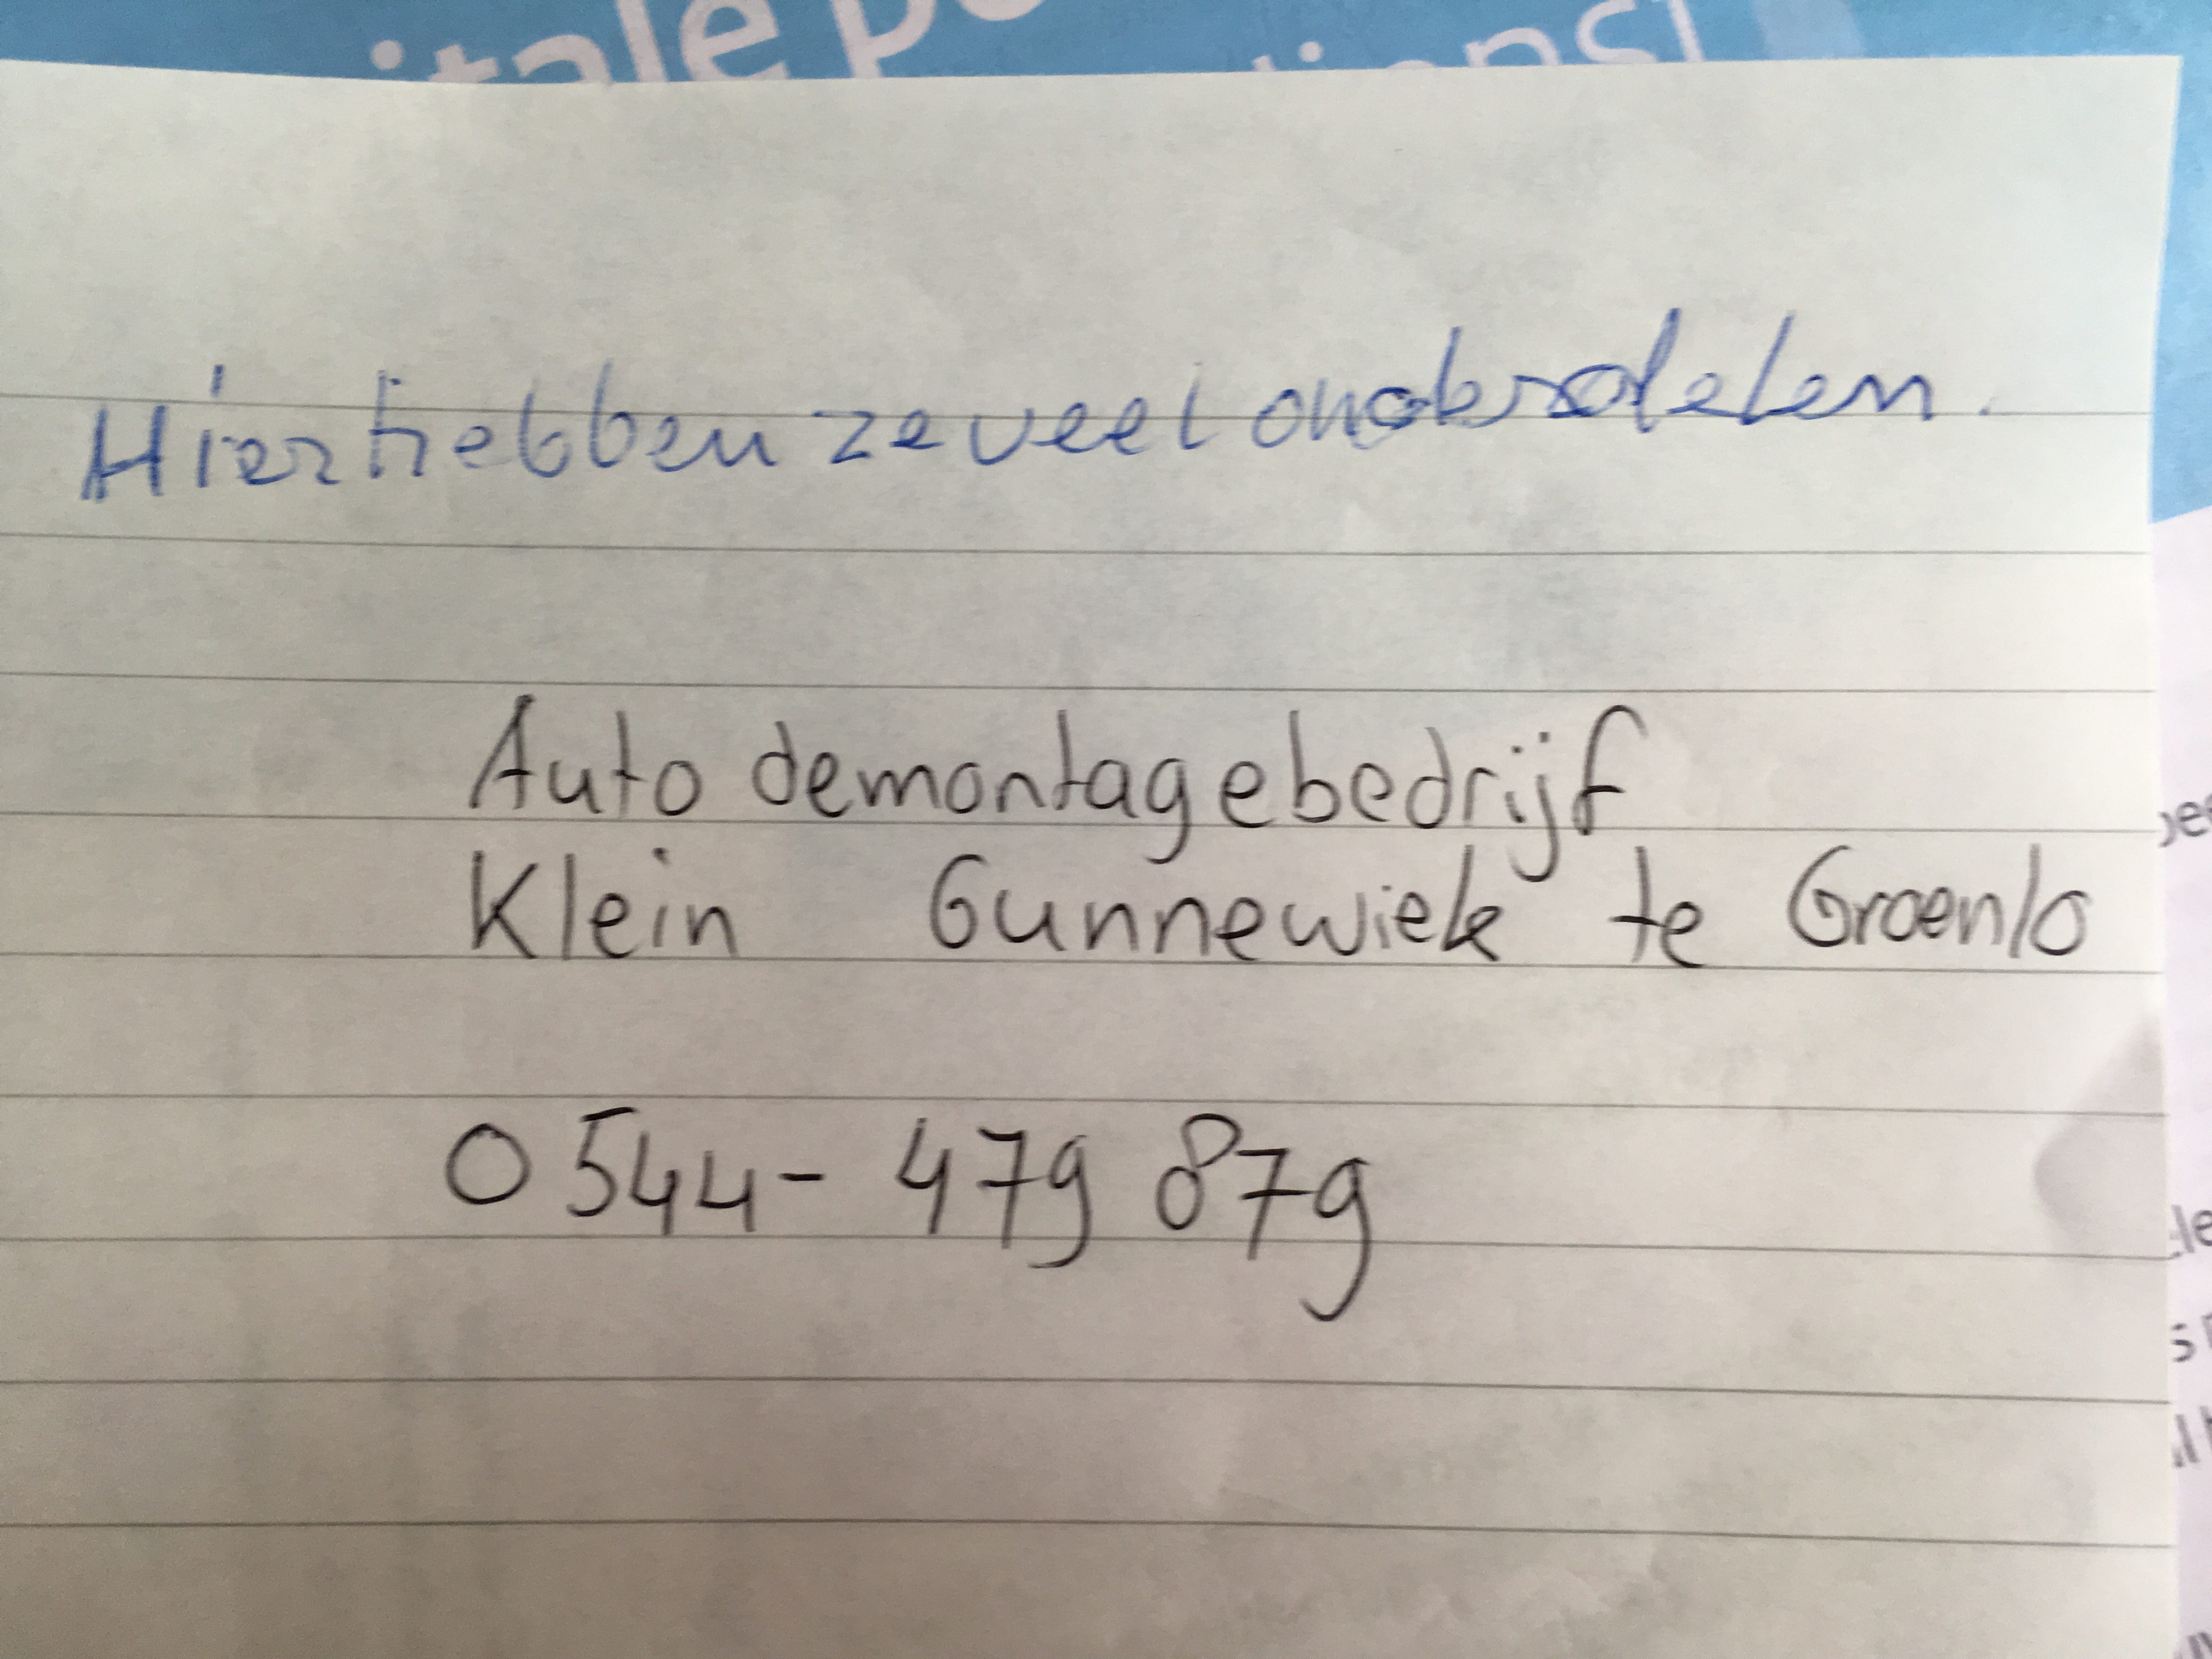 itale po
tions!
Hier hebben ze veel onderdelen.
Auto demontagebedrijf
Klein Gunnewiek te Groenlo
0544- 479 879